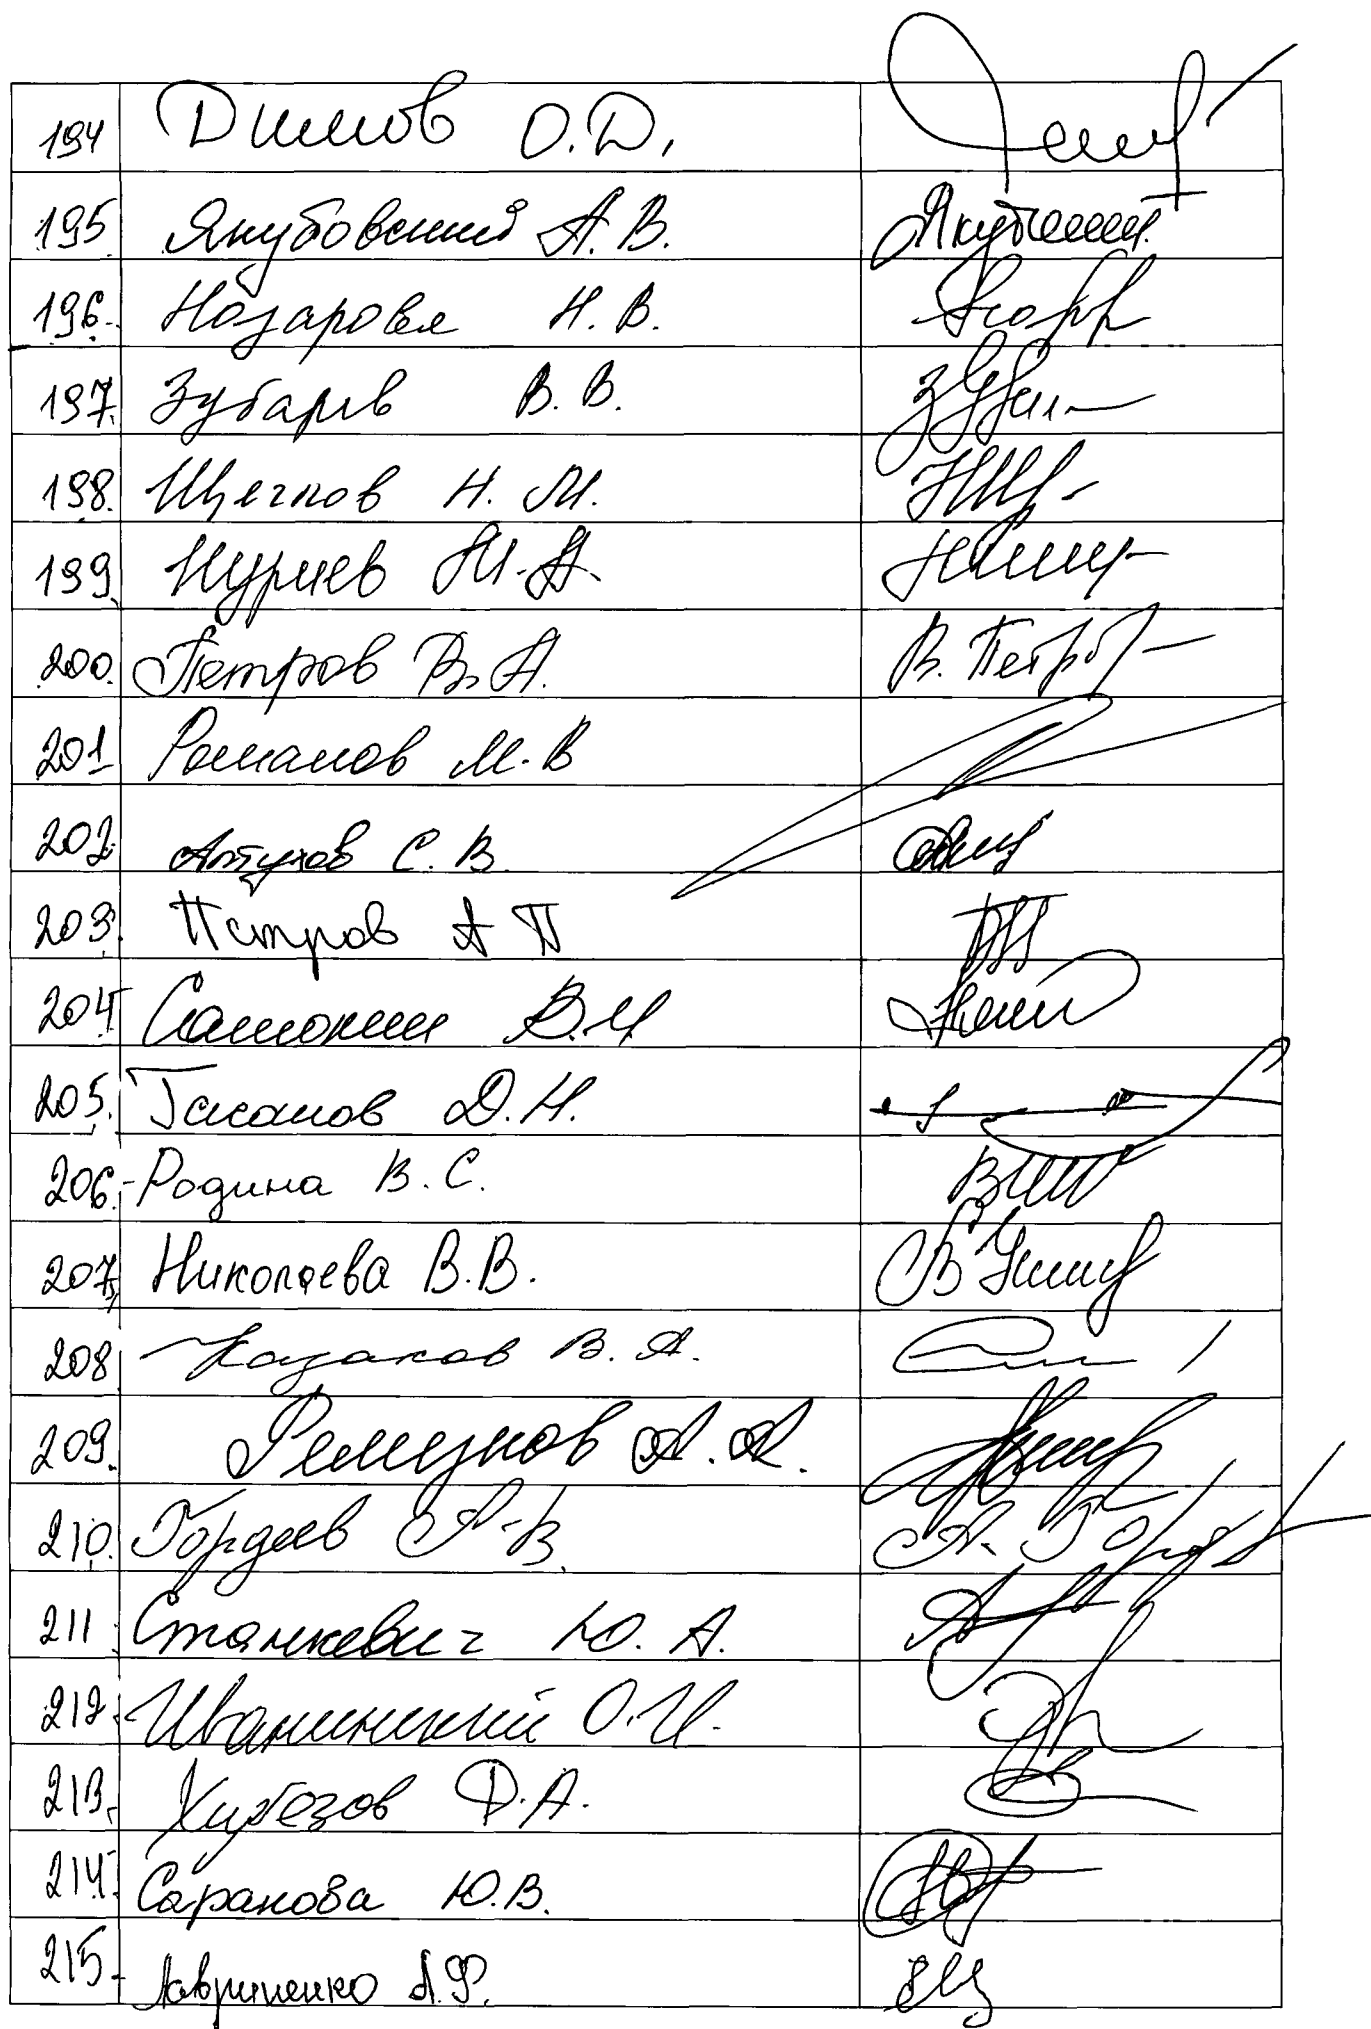 194 Димов О.Д.
195. Якубовский А.В.
196. Назарова Н.В.
197. Зубарев В.В.
198. Щеглов Н.М.
199. Нуриев
200. Петров В.А. В. Петров
201 Романов М.В
202. С.В.
203. Петров А П
204 Самохин В.И
205. Гасанов Д.Н.
206. Родина В.С.
207. Николаева В.В.
208 Казаков В.А.
209. Ремезков А.А.
210. Гордеев А.В. А. Горд
211 Станкевич Ю.А.
212. О.И.
213. Хубезов Д.А.
214. Саранова Ю.В.
215. Лавриненко А.Ф.